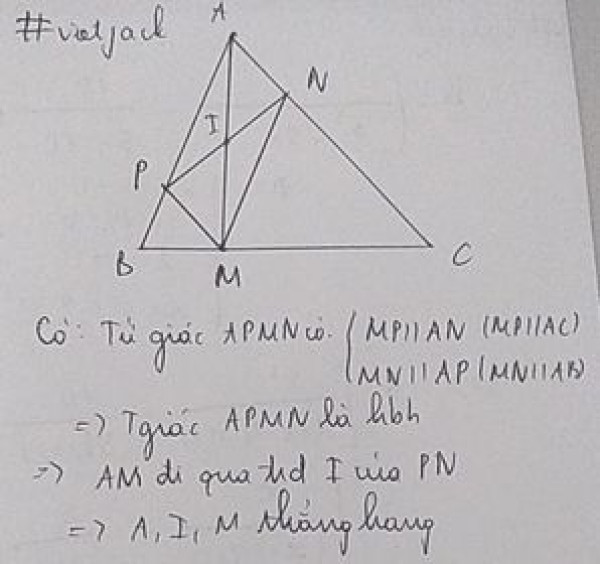 #vietjack
A
N
I
P
B
M
C
Có: Tứ giác APMN có: { MP || AN (MP || AC)
MN || AP (MN || AB)
=> Tgiác APMN là hbh
=> AM đi qua trđ I của PN
=> A, I, M thẳng hang